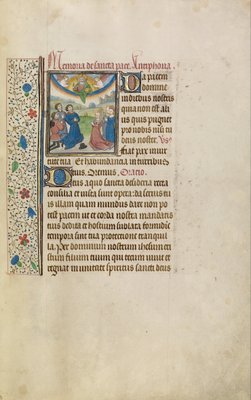 Memoria de sancta pace. Antiphona.
Da pacem
domine
in diebus nostris
quia non est ali
us qui pugnet
pro nobis nisi tu
deus noster. Vs
fiat pax in vir
tute tua Et habundancia in turribus
tuis. Oremus. Oracio.
Deus a quo sancta desideria recta
consilia et iusta sunt opera da servis tu
is illam quam mundus dare non po
test pacem ut et corda nostra mandatis
tuis dedita et hostium sublata formidine
tempora sint tua protectione tranquil
la. Per dominum nostrum ihesum cri
stum filium tuum qui tecum vivit et
regnat in unitate spiritus sancti deus